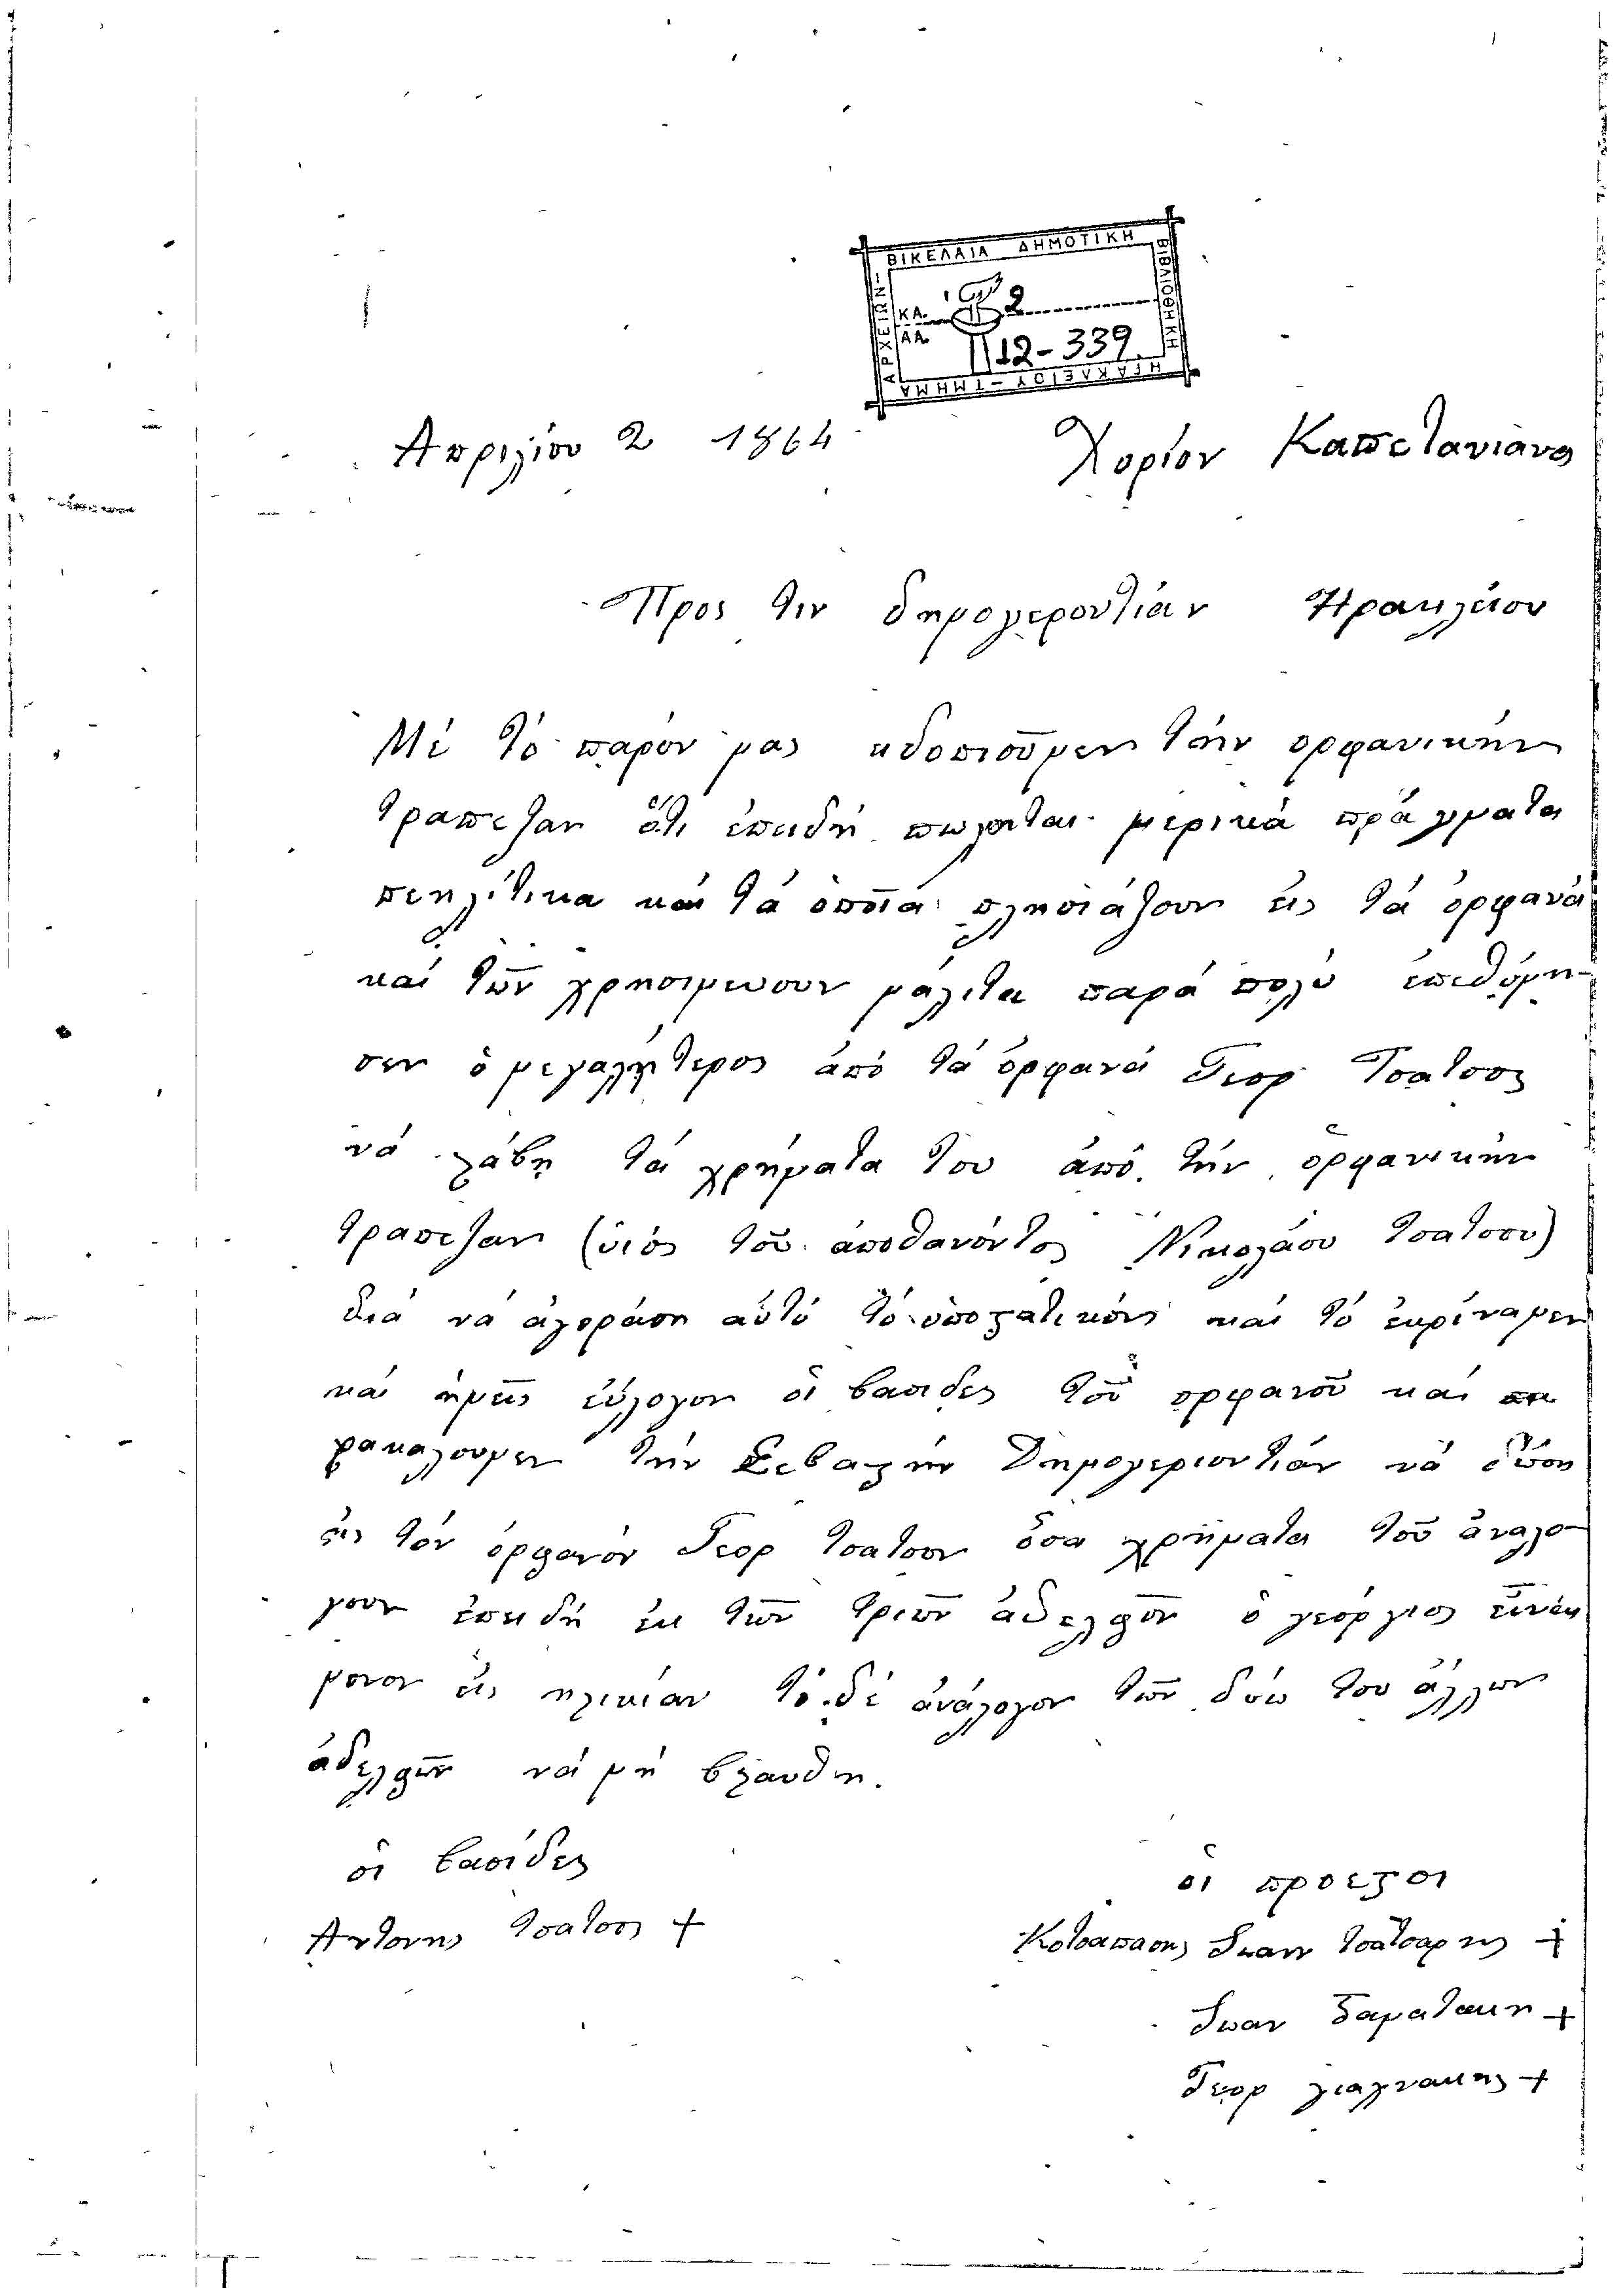 ΒΙΚΕΛΑΙΑ ΔΗΜΟΤΙΚΗ
ΒΙΒΛΙΟΘΗΚΗ
ΗΡΑΚΛΕΙΟΥ - ΤΜΗΜΑ
ΑΡΧΕΙΩΝ -
ΚΑ. 2
ΑΑ. 112-339
Απριλίου 2 1864 Χορίον Καπετανιανα
Προς τιν δημογεροντίαν Ηρακλείου
Μέ τό παρόν μας ηδοπιοῦμεν τήν ορφανικήν
τραπεζαν ὅτι ἐπειδή πωλοιται μερικά πράγματα
πεκλίτικα καί τά ὁποῖα πλησιάζουν εἰς τά ὀρφανά
καί τῶν χρησιμευουν μάλιτα παρά πολύ ἐπεθύμη-
σεν ὁ μεγαλήτερος ἀπό τά ὀρφανά Γεορ Τσατσος
νά λάβη τά χρήματα του ἀπό τήν ὀρφανικήν
τραπεζαν (ὑιός τοῦ ἀποθανόντος Νικολάου τσατσου)
διά νά ἀγοράση αὐτό τό ὑποστατικόν καί τό ἐκρίναμεν
καί ημεῖς εὔλογον οἱ βασιδες τοῦ ορφανοῦ καί πα
ρακαλουμεν τήν Σεβαστήν Δημογεριοντίαν νά δώση
εἰς τόν ὀρφανόν Γεορ τσατσον ὅσα χρήματα τοῦ ἀναλο-
γουν ἐπειδή ἐκ τῶν τριῶν ἀδελφῶν ὁ γεόργιος εἶναι
μονον εἰς ηλικίαν τό δέ ἀνάλογον τῶν δύω του ἄλλων
ἀδελφῶν νά μή βλαυθη.
οἱ βασίδες οἱ προεστοι
Αντονης τσατσος + Κοτσαπασης Ιωαν τσατσαρης +
Ιωαν δαματακη +
Γεορ γιαγνακης +